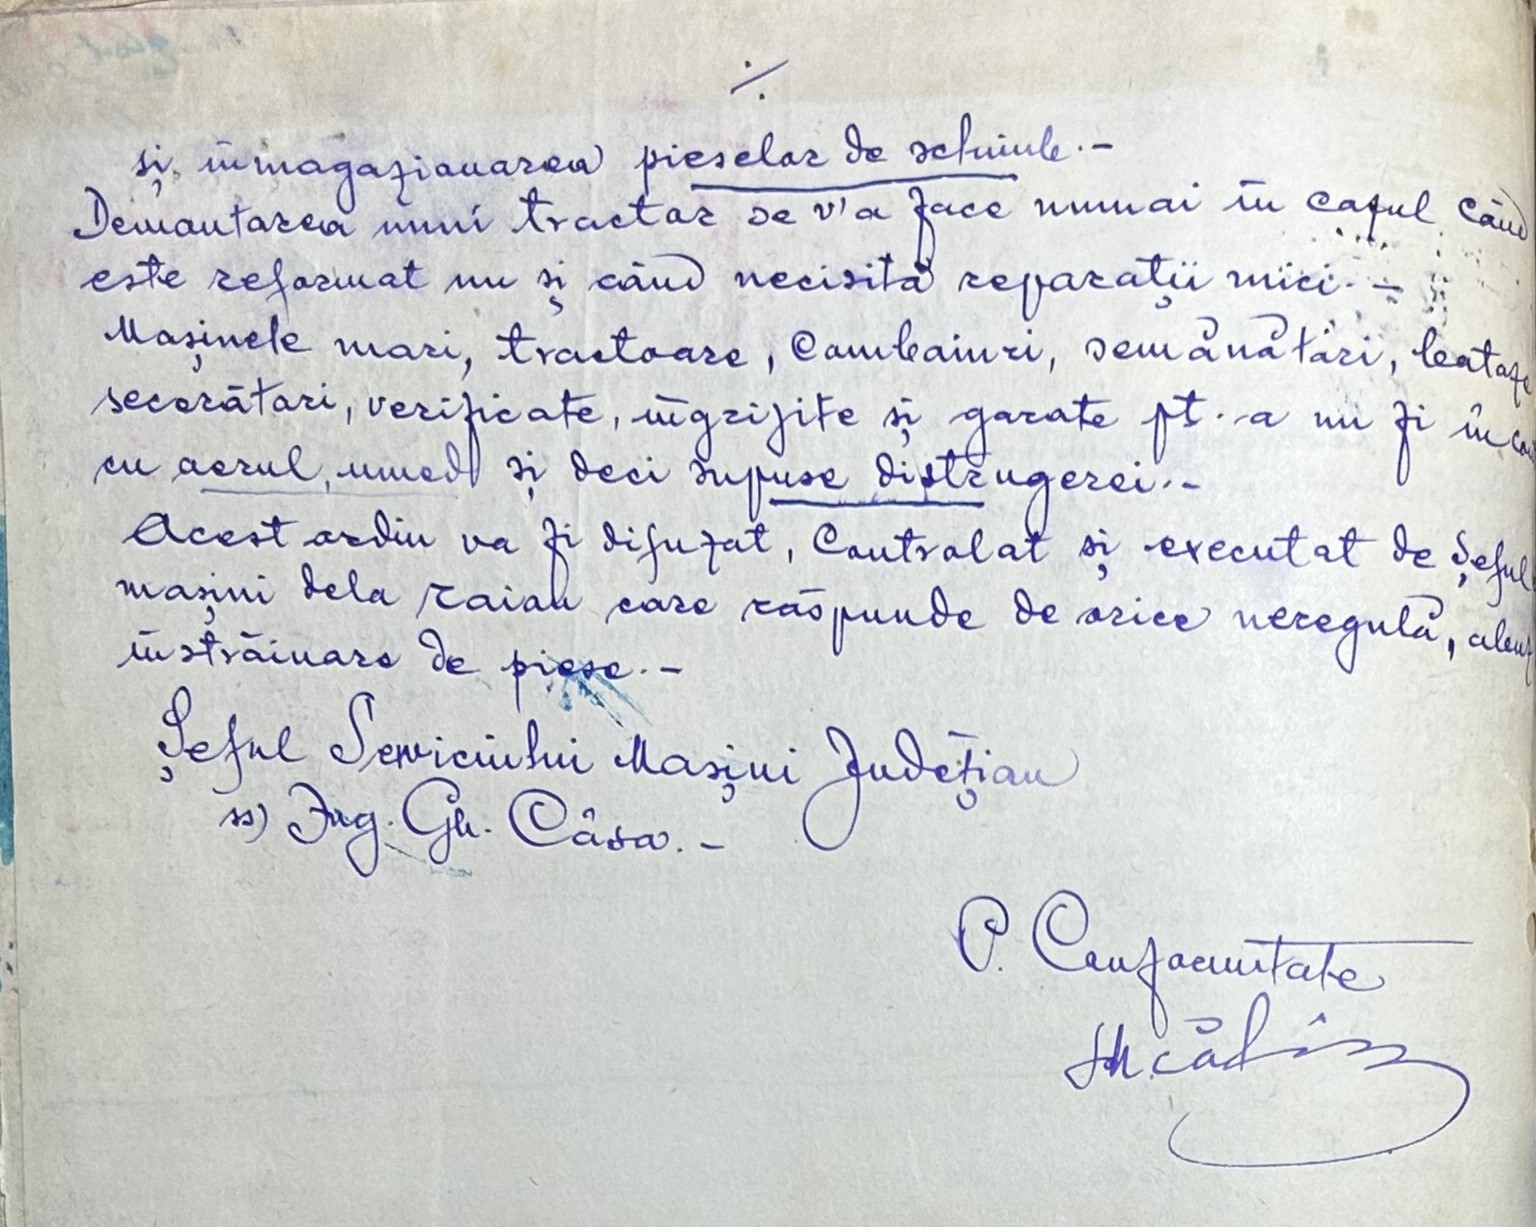 ./.
și înmagazionarea pieselor de schimb.-
Demontarea unui tractor se v'a face numai în cazul când
este reformat nu și când necisită reparații mici.-
Mașinele mari, tractoare, Combainuri, semănători,
secerători, verificate, îngrijite și garate pt. a nu fi în
cu aerul, umed și deci supuse distrugerei.-
Acest ordin va fi difuzat, Controlat și executat de Șeful
mașini dela raion care răspunde de orice neregulă,
înstrăinare de piese.-
Șeful Serviciului Mașini Județian
ss) Ing. Gh. Câsa.-
P. Conformitate